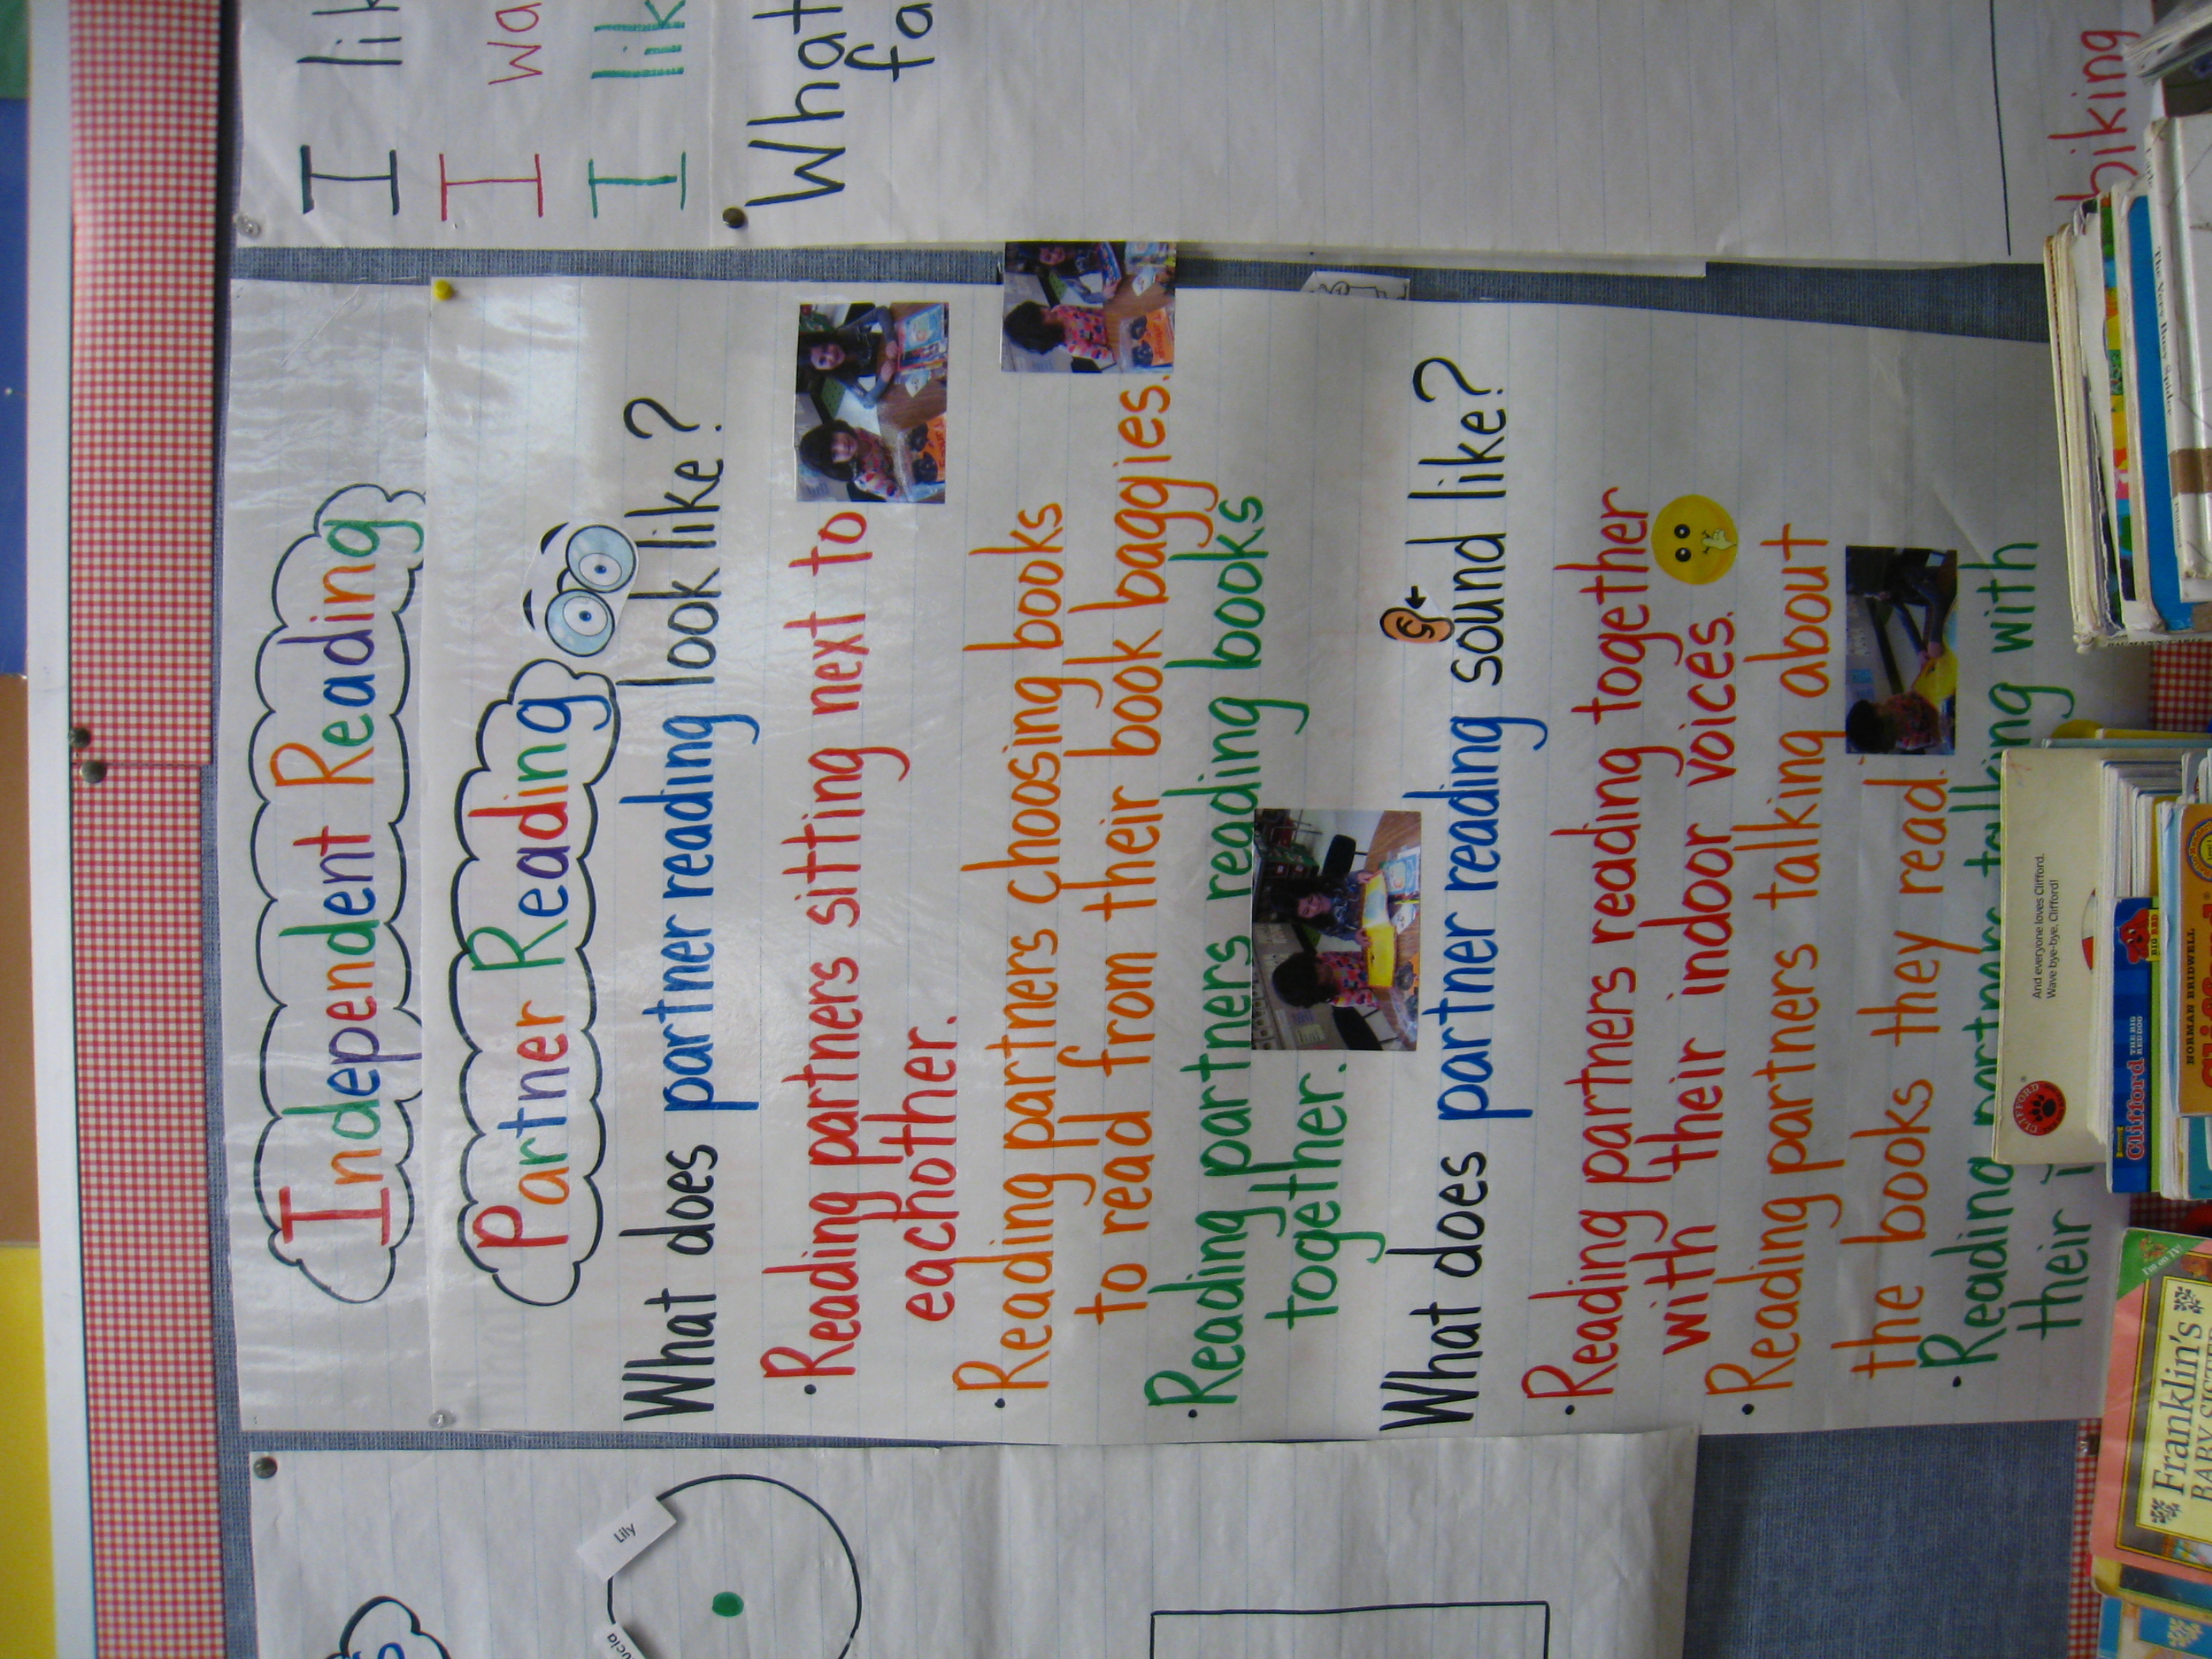 Independent Reading
Partner Reading
What does partner reading look like?
• Reading partners sitting next to
eachother.
• Reading partners choosing books
to read from their book baggies.
• Reading partners reading books
together.
What does partner reading sound like?
• Reading partners reading together
with their indoor voices.
• Reading partners talking about
the books they read.
• Reading partners talking with
their
Lily
I lik
I wa
I lik
What
fa
biking
And everyone loves Clifford.
Wave bye-bye, Clifford!
CLIFFORD
Clifford THE BIG RED DOG
BIG RED
NORMAN BRIDWELL
Franklin's